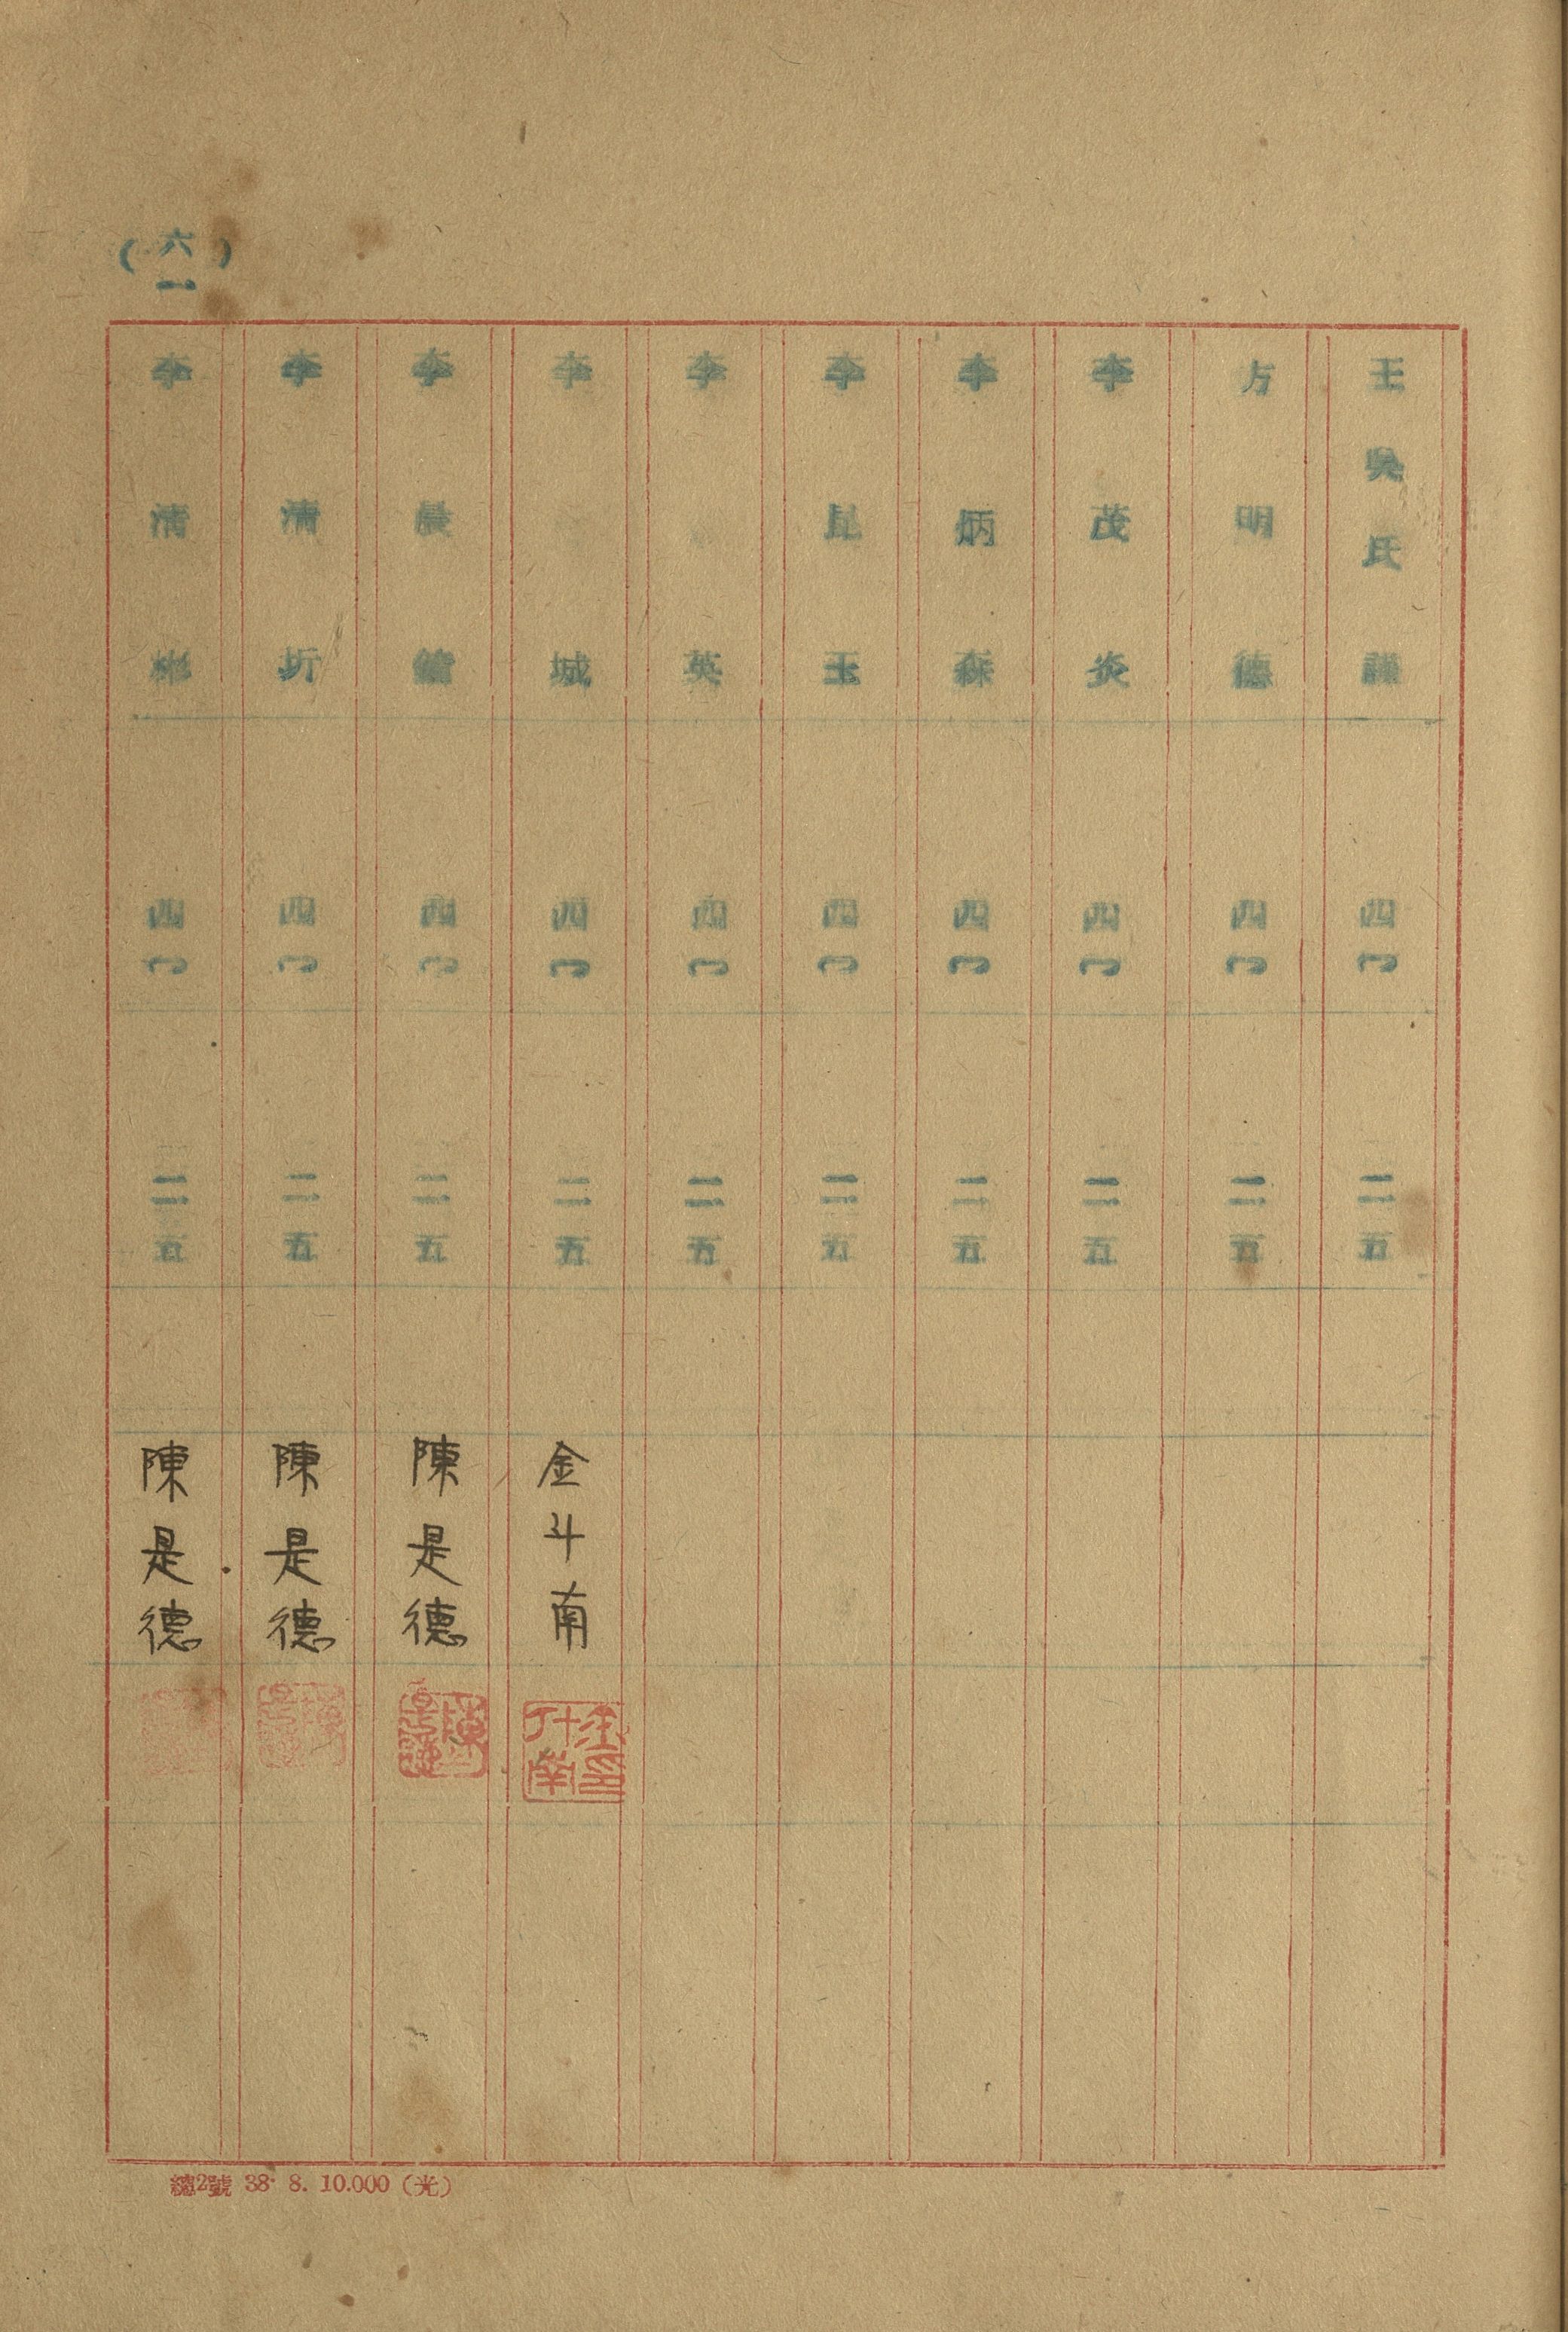 王吳氏謙 四〇 二五
方明德 四〇 二五
李茂炎 四〇 二五
李炳森 四〇 二五
李昆玉 四〇 二五
李英 四〇 二五
李城 四〇 二五 金斗南
李晨 四〇 二五 陳是德
李清圻 四〇 二五 陳是德
李清彬 四〇 二五 陳是德
(六一)
總2號 38. 8. 10.000 (光)